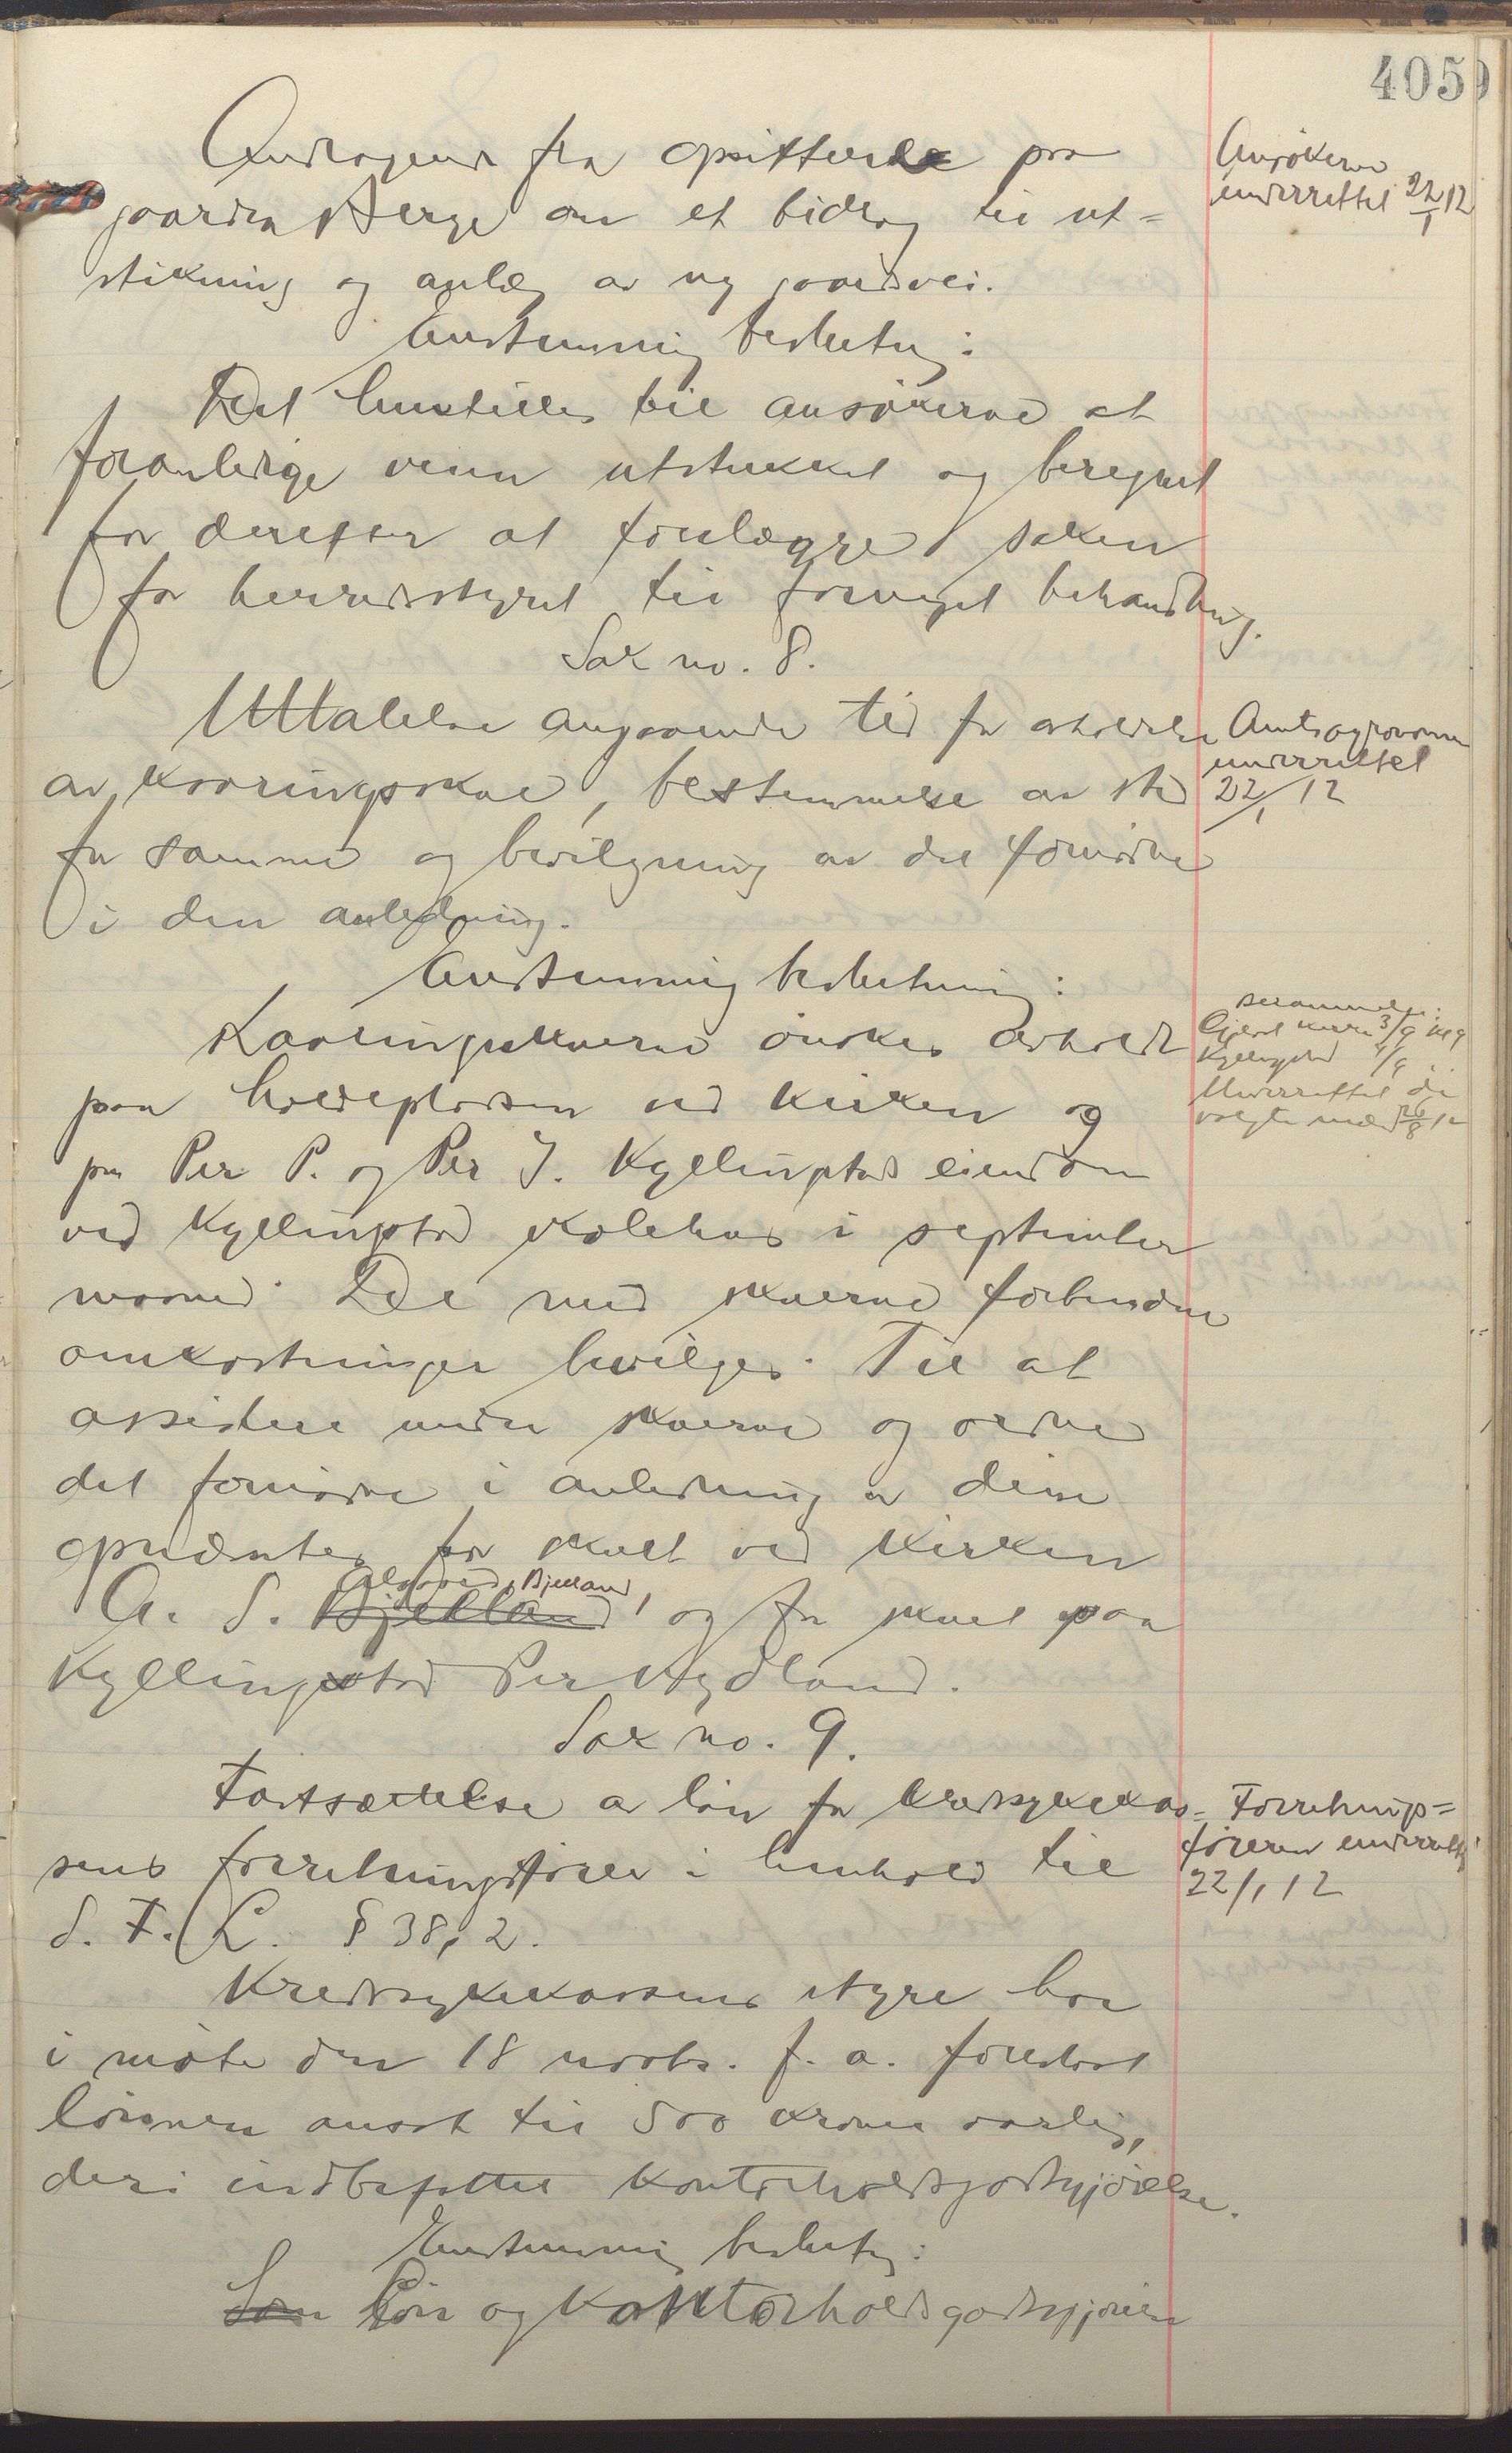 405
Andragende fra opsitterne paa
gaarden Berge om et bidrag til ut-
stikning og anlæg av ny gaardsvei.
Enstemmig beslutng:
Det henstilles til ansökerne at
foranledige veien utstukket og beregnet
for derefter at forelægge saken
for herredsstyret til fornyet behandling.
Sak no. 8.
Uttalelse angaaende tid for avholdelse
av kaaringsskue, bestemmelse av sted
for samme og bevilgning av det fornödne
i den anledning.
Enstemmig beslutning:
Kaaringsskuerne önskes avholdt
paa holdepladsen ved kirken og
paa Per P. og Per J. Kyllingstads eiendom
ved Kyllingstad skolehus i september
maaned. De med skuerne forbundne
omkostninger bevilges. Til at
assistere under skuerne og ordne
det fornödne i anledning av disse
opnævntes for skuet ved kirken
Bjelland
A. S. Bjelland, og for skuet paa
Kyllingstad Per Nydland.
Sak no. 9.
Fortsættelse av lön for kredssykekas-
sens forretningsförer i henhold til
S. F. L. § 38, 2.
Kredssykekassens styre har
i möte den 18 novbr. f. a. foreslaat
lönnen ansat til 500 kroner aarlig,
deri indbefattet kontorholdsgodtgjörelse.
Enstemmig beslutng:
Som Lön og kontorholdsgodtgjörelse
Ansökerne
underrettet 22/1 12
Amtsagronomen
underrettet
22/1 12
Kyllingstad
Underrettet de
valgte mænd 26/8 12
Forretnings-
föreren underrettet
22/1 12